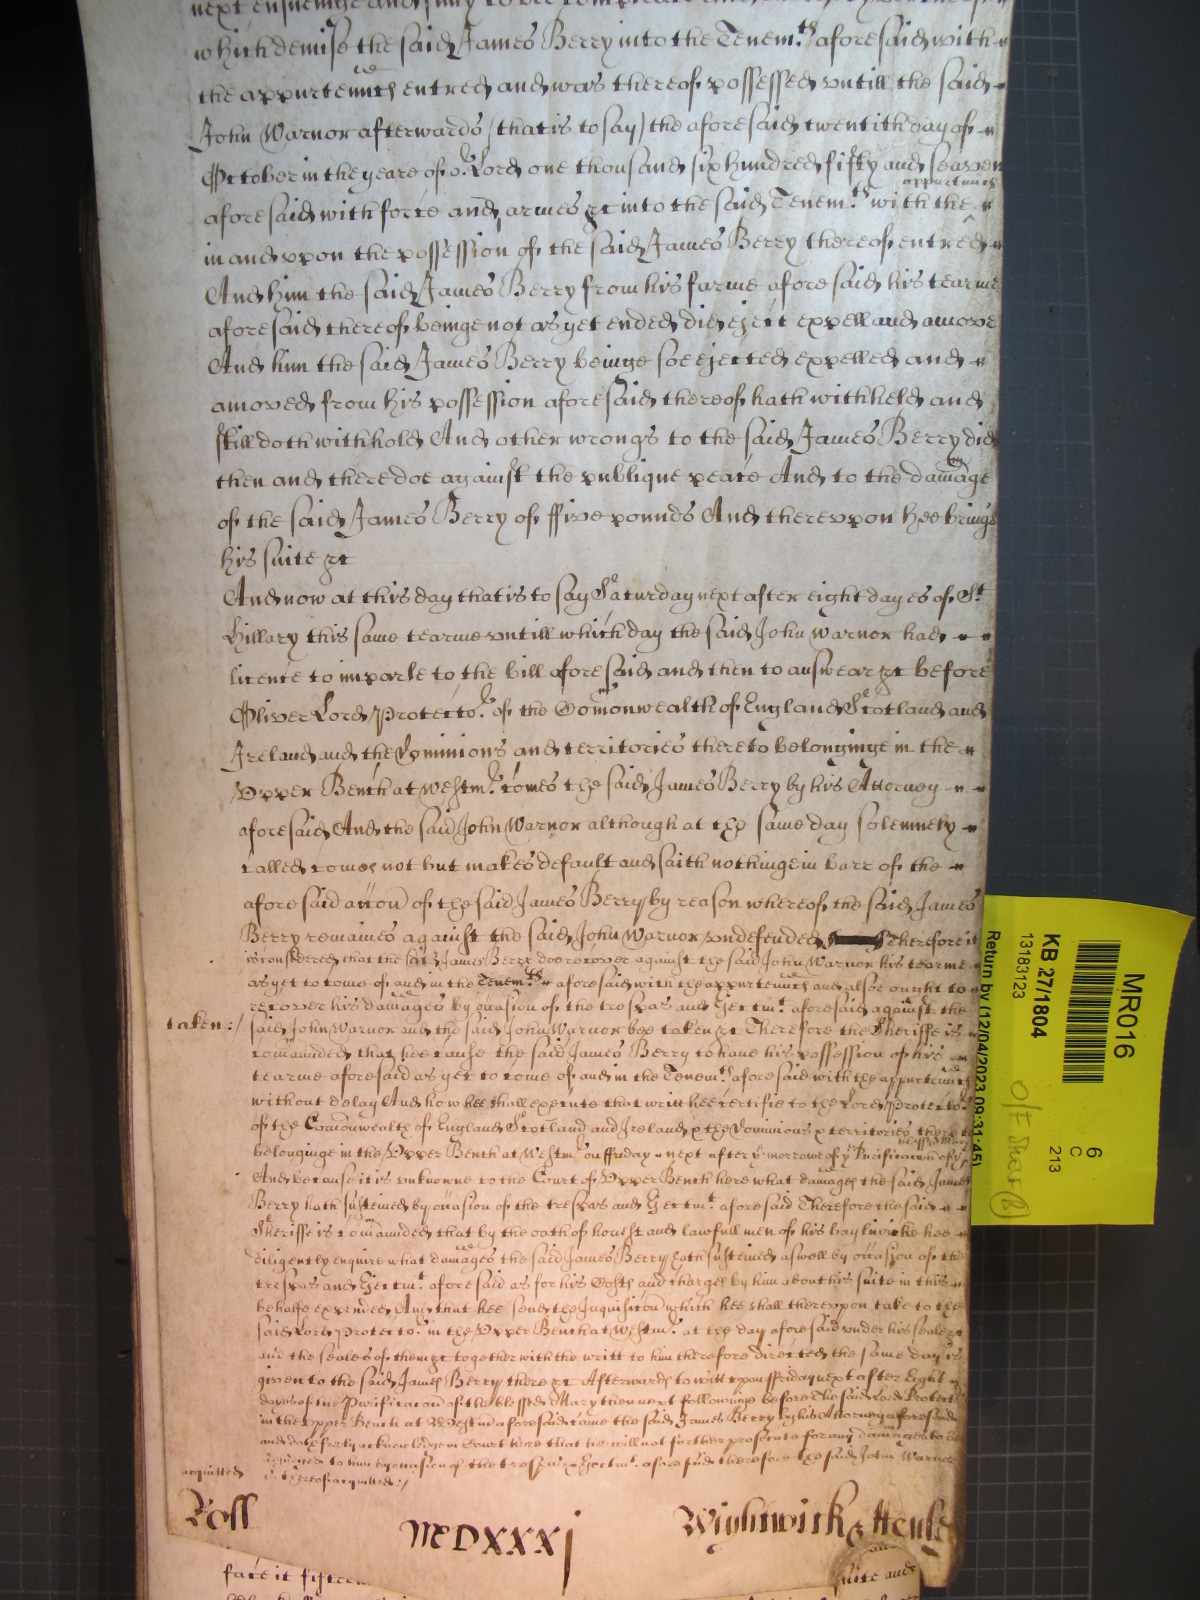 next ensueinge and fully to bee compleate and ended
which demise the said James Berry into the Tenem.ts aforesaid with
the appurtennces entred and was thereof possessed untill the said
John Warnor afterwards (that is to say) the aforesaid twentith day of
October in the yeare of o.r Lord one thousand six hundred fifty and seaven
aforesaid with force and armes &c into the said Tenem.ts with the appurtennces
in and uppon the possession of the said James Berry thereof entred
And him the said James Berry from his farme aforesaid his tearme
aforesaid thereof beinge not as yet ended did eject expell and amove
And him the said James Berry beinge soe ejected expelled and
amoved from his possession aforesaid thereof hath withheld and
still doth withhold And other wrongs to the said James Berry did
then and there doe against the publique peace And to the damage
of the said James Berry of ffive pounds And thereuppon hee brings
his suite &c
And now at this day that is to say Saturday next after eight dayes of S.t
Hillary this same tearme untill which day the said John Warnor had
licence to imparle to the bill aforesaid and then to answear &c before
Oliver Lord Protecto.r of the Comonwealth of England Scotland and
Ireland and the Dominions and territories thereto belonginge in the
Upper Bench at Westm.r comes the said James Berry by his Attorney
aforesaid And the said John Warnor although at the same day solemnely
called comes not but makes default and saith nothinge in barr of the
aforesaid accon of the said James Berry by reason whereof the said James
Berry remaines against the said John Warnor undefended Therefore it
is considered that the said James Berry doe recover against the said John Warnor his tearme
as yet to come of and in the Tenem.ts aforesaid with the appurtennces and alsoe ought to
recover his damages by occasion of the trespas and Ejectm.t aforesaid against the
taken:/ said John Warnor and the said John Warnor bee taken &c Therefore the Sheriffe is
comaunded that hee cause the said James Berry to have his possession of his
tearme aforesaid as yet to come of and in the Tenem.ts aforesaid with the appurtennces
without delay And how hee shall execute that writt hee certifie to the Lord Protecto.r
of the Comonwealth of England Scotland and Ireland & the Dominions & territories thereto
belonginge in the Upper Bench at Westm.r on ffryday next after y.e morrowe of y.e Purificacon of y.e blessed Mary
And because it is unknowne to the Court of Upper Bench here what damages the said James
Berry hath susteined by occasion of the trespas and Ejectm.t aforesaid Therefore the said
Sheriffe is comaunded that by the oath of honest and lawfull men of his bayliwicke hee
diligently enquire what damages the said James Berry hath susteined aswell by occasion of the
trespas and Ejectm.t aforesaid as for his Costs and charges by him about his suite in this
behalfe expended And that hee send the Inquisicon which hee shall thereuppon take to the
said Lord Protecto.r in the Upper Bench at Westm.r at the day aforesaid under his seale &c
and the seales of them &c together with the writt to him therefore directed the same day is
given to the said James Berry there &c Afterwards to witt uppon ffriday next after Eight
dayes of the Purificacon of the blessed Mary then next followinge before the said Lord Protector
in the Upper Bench at Westm.r aforesaid came the said James Berry by his Attorney aforesaid
and doth freely acknowledge in Court here that he will not further prosecute for any damages to be
acquitted adjudged to him by occasion of the trespas & Ejectm.t aforesaid therefore the said John Warnor
is thereof acquitted:/
Roll MDXXXj Wightwick &
face it fifteen suite and
MR016
KB 27/1804
13183123
Return by (12/04/2023 09:31:45)
6
C
213